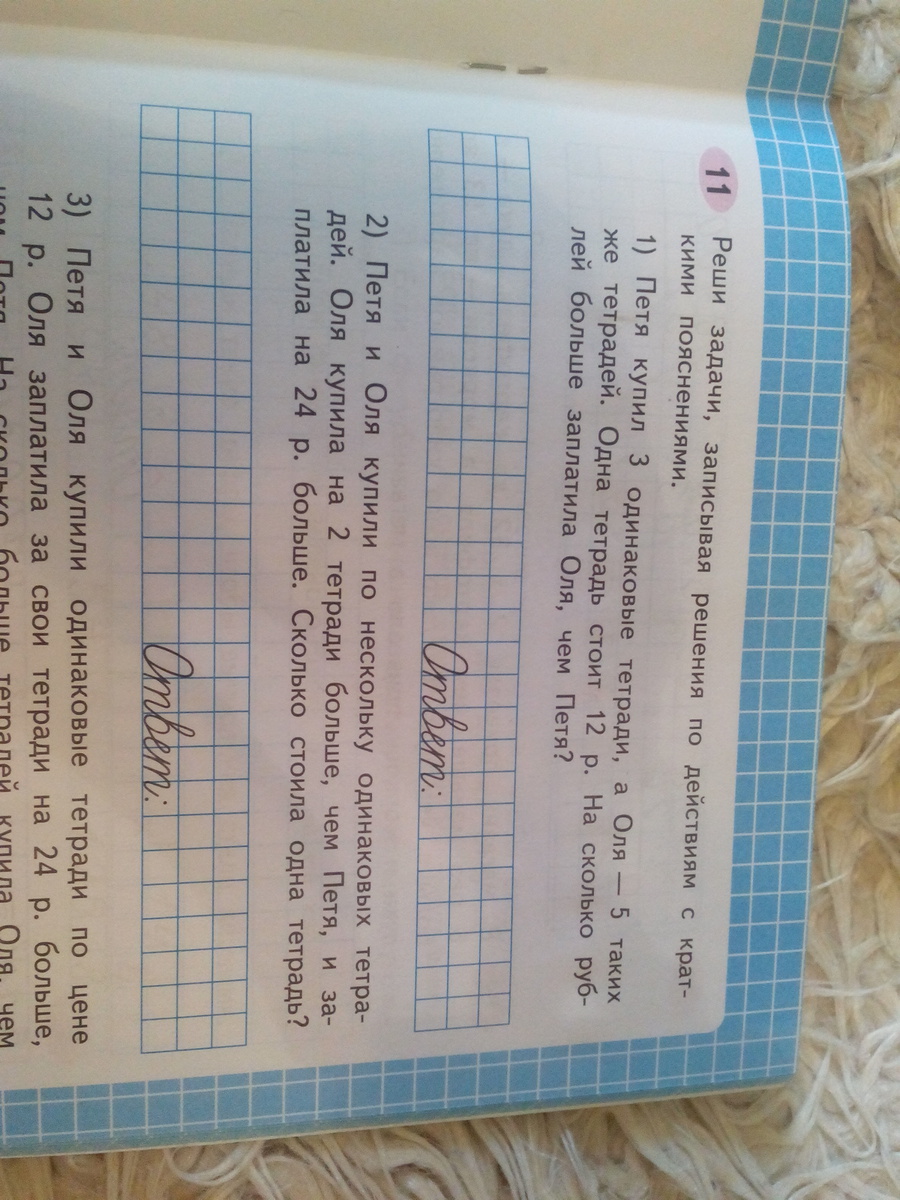 11 Реши задачи, записывая решения по действиям с крат-
кими пояснениями.
1) Петя купил 3 одинаковые тетради, а Оля — 5 таких
же тетрадей. Одна тетрадь стоит 12 р. На сколько руб-
лей больше заплатила Оля, чем Петя?
Ответ:
2) Петя и Оля купили по нескольку одинаковых тетра-
дей. Оля купила на 2 тетради больше, чем Петя, и за-
платила на 24 р. больше. Сколько стоила одна тетрадь?
Ответ:
3) Петя и Оля купили одинаковые тетради по цене
12 р. Оля заплатила за свои тетради на 24 р. больше,
чем Петя. На сколько больше тетрадей купила Оля, чем